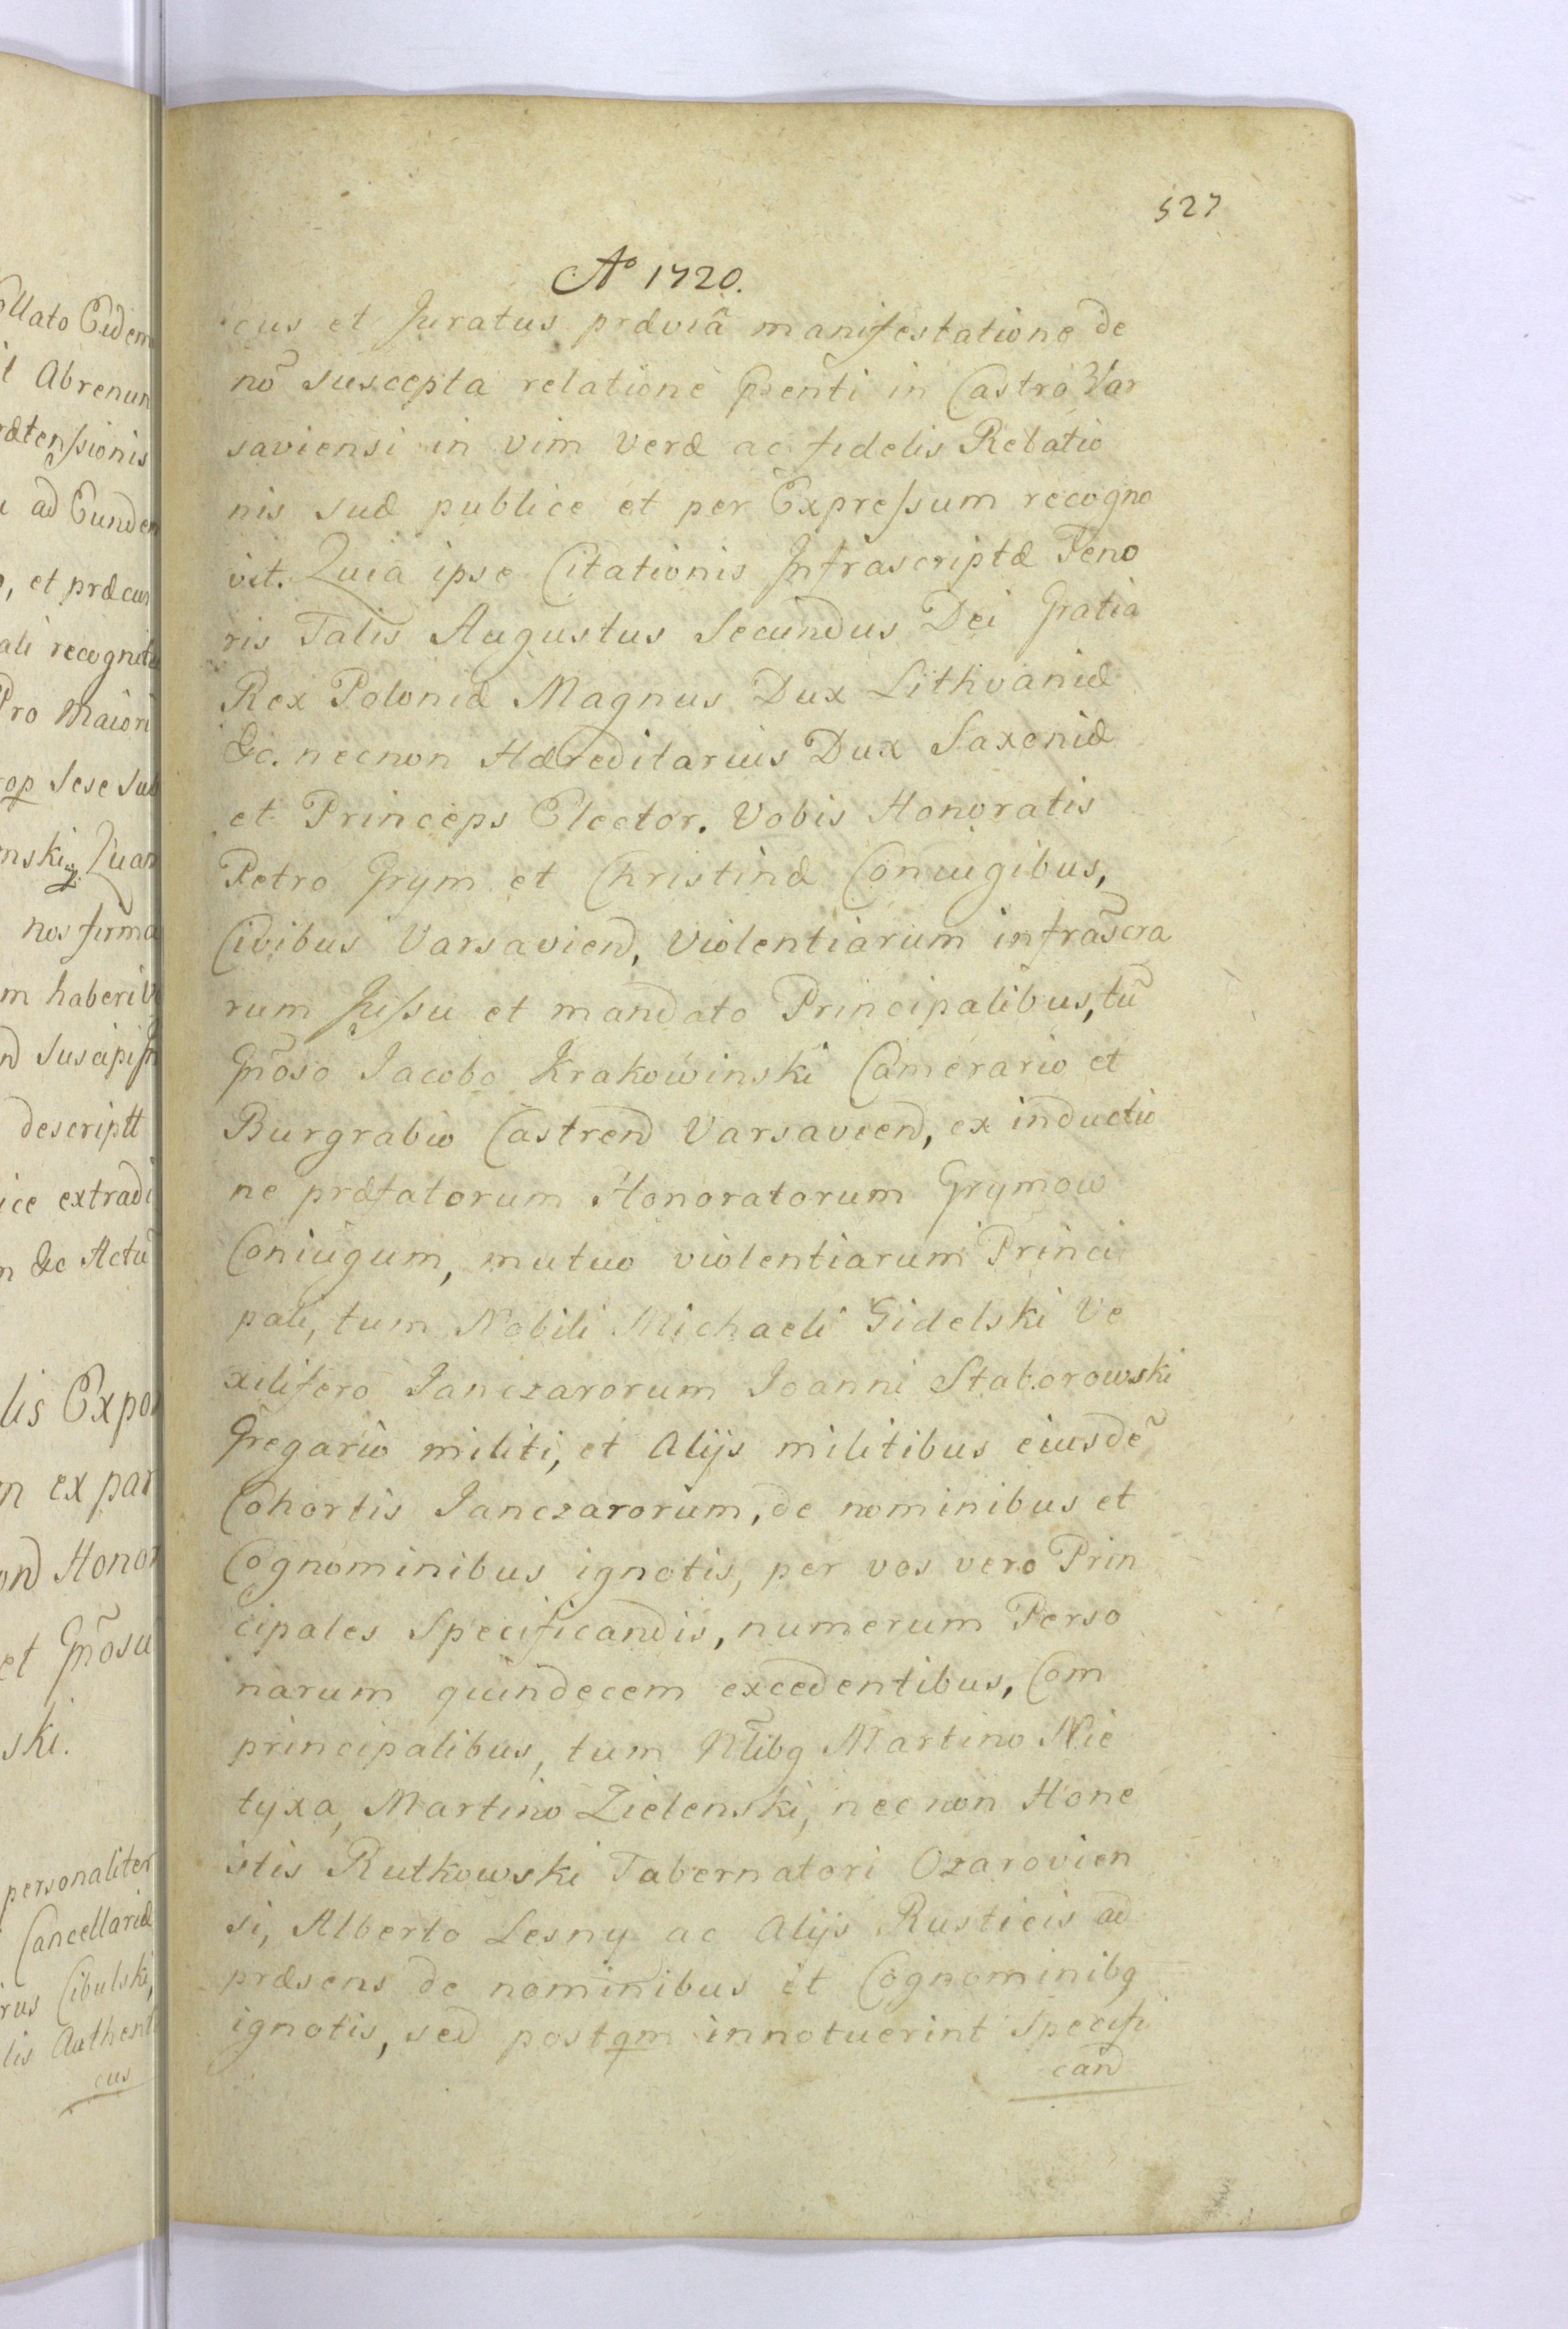 527
Aº 1720.
cus et Juratus præviâ manifestatione de
nō suscepta relatione pñti in Castro Var
saviensi in vim veræ ac fidelis Relatio
nis suæ publice et per Expreſsum recogno
vit. Quia ipse Citationis Infrascriptæ Teno
ris Talis Augustus Secundus Dei Gratia
Rex Poloniæ Magnus Dux Lithvaniæ
&c. necnon Hæreditarius Dux Saxoniæ
et Princeps Elector. Vobis Honoratis
Petro Grym et Christinæ Coniugibus,
Civibus Varsavien, Violentiarum infrascra
rum Juſsu et mandato Principalibus, tū
Gñoso Jacobo Krakowinski Camerario et
Burgrabio Castren Varsavien, ex inductio
ne præfatorum Honoratorum Grymow
Coniugum, mutuo violentiarum Princi
pali, tum Nobili Michaeli Gidelski Ve
xilifero Janczarorum Joanni Staborowski
Gregario militi, et Alijs militibus eiusdē
Cohortis Janczarorum, de nominibus et
Cognominibus ignotis, per vos vero Prin
cipales Specificandis, numerum Perso
narum quindecem excedentibus, Com
principalibus, tum Nlibg Martino Nie
tyxa, Martino Zielenski, necnon Hone
stis Rutkowski Tabernatori Ozarovien
si, Alberto Lesny ac Alijs Rusticis ad
præsens de nominibus et Cognominibg
ignotis, sed postqm innotuerint Specifi
cand
ollato Eidem
it Abrenun
rætenſsionis
u ad Eundem
o, et præcus
ali recognit
Pro Maiori
rop sese sub
mski Quam
nos firma
m haberi v
nd suscipi
descriptt
ice extradi
m &c Actū
lis Expo
m ex par
ond Honor
et Gñosu
ski.
personaliter
Cancellariæ
rus Cibulski,
lis Authenti
cus